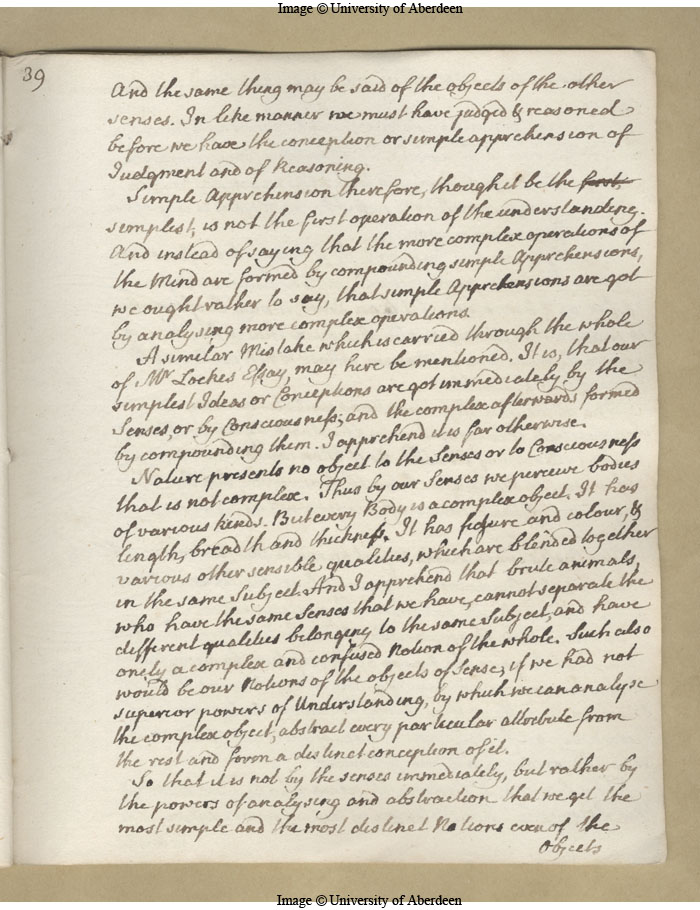 Image © University of Aberdeen
39
And the same thing may be said of the objects of the other
senses. In like manner we must have judged & reasoned
before we have the conception or simple apprehension of
Judgment and of Reasoning.
Simple Apprehension therefore, though it be the first,
simplest, is not the first operation of the understanding.
And instead of saying that the more complex operations of
the Mind are formed by compounding simple Apprehensions,
we ought rather to say, that simple Apprehensions are got
by analysing more complex operations.
A similar Mistake which is carried through the whole
of Mr Lockes Essay, may here be mentioned. It is, that our
simplest Ideas or Conceptions are got immediately by the
Senses, or by Consciousness; and the complex afterwards formed
by compounding them. I apprehend it is far otherwise.
Nature presents no object to the Senses or to Consciousness
that is not complex. Thus by our Senses we perceive bodies
of various kinds. But every Body is a complex object. It has
length, breadth and thickness. It has figure and colour, &
various other sensible qualities, which are blended together
in the same Subject. And I apprehend that brute animals,
who have the same Senses that we have, cannot separate the
different qualities belonging to the same Subject, and have
onely a complex and confused Notion of the whole. Such also
would be our Notions of the objects of Sense, if we had not
superior powers of Understanding, by which we can analyse
the complex object, abstract every particular attribute from
the rest and form a distinct conception of it.
So that it is not by the senses immediately, but rather by
the powers of analysing and abstraction that we get the
most simple and the most distinct Notions even of the
Objects
Image © University of Aberdeen